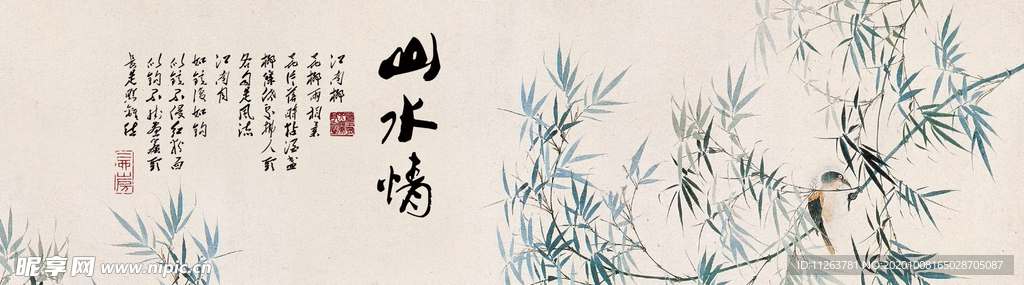 山水情
江南柳
花柳两相柔
花片落时黏酒盏
柳条低处拂人头
各自是风流
江南月
如镜复如钩
似镜不侵红粉面
似钩不挂画帘头
长是照离愁
昵享网 www.nipic.cn
ID:11263781 NO:20201008165028705087